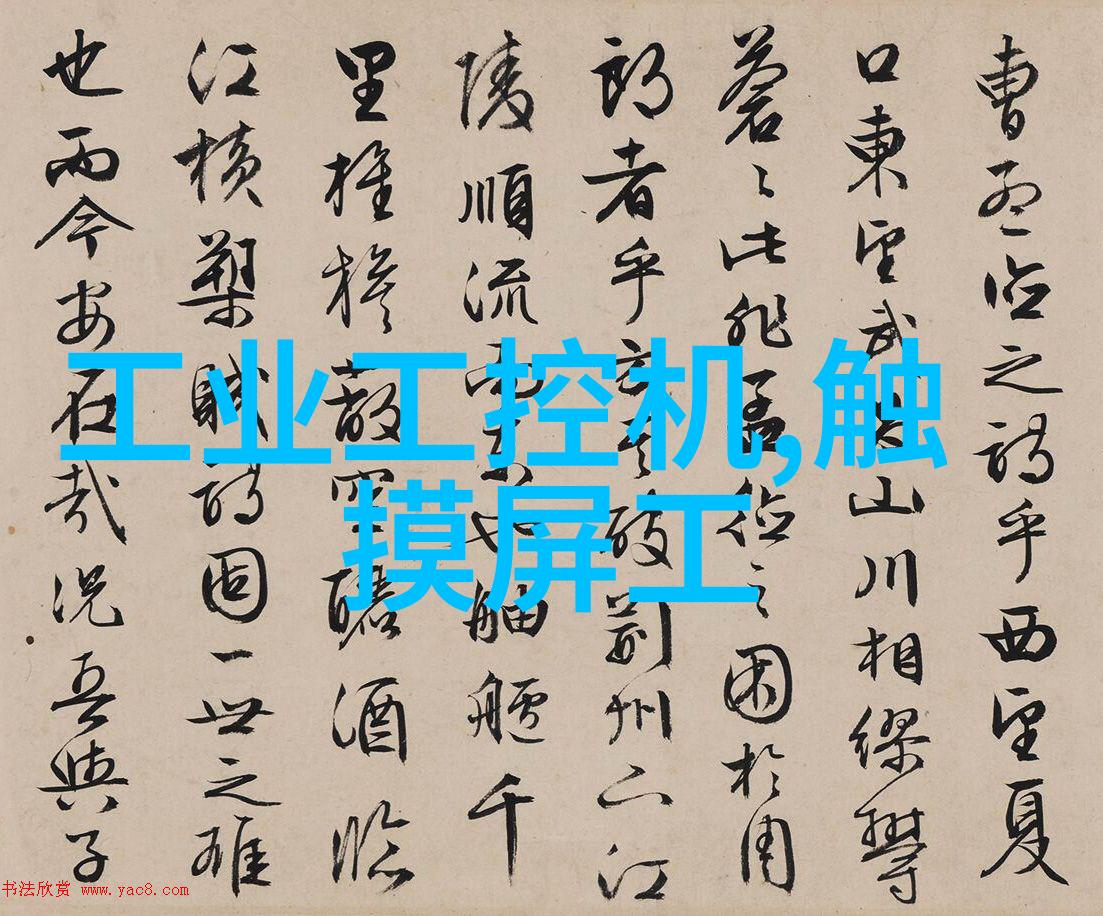 曹孟德之詩乎西望夏
口東望武昌山川相繆鬱
蒼〻此非孟德之困於周
郎者乎方其破荊州下江
陵順流而東也舳艫千
里旌旗蔽空釃酒臨
江橫槊賦詩固一世之雄
也而今安在哉況吾與子
工业工控机,触
摸屏工
书法欣赏 www.yac8.com